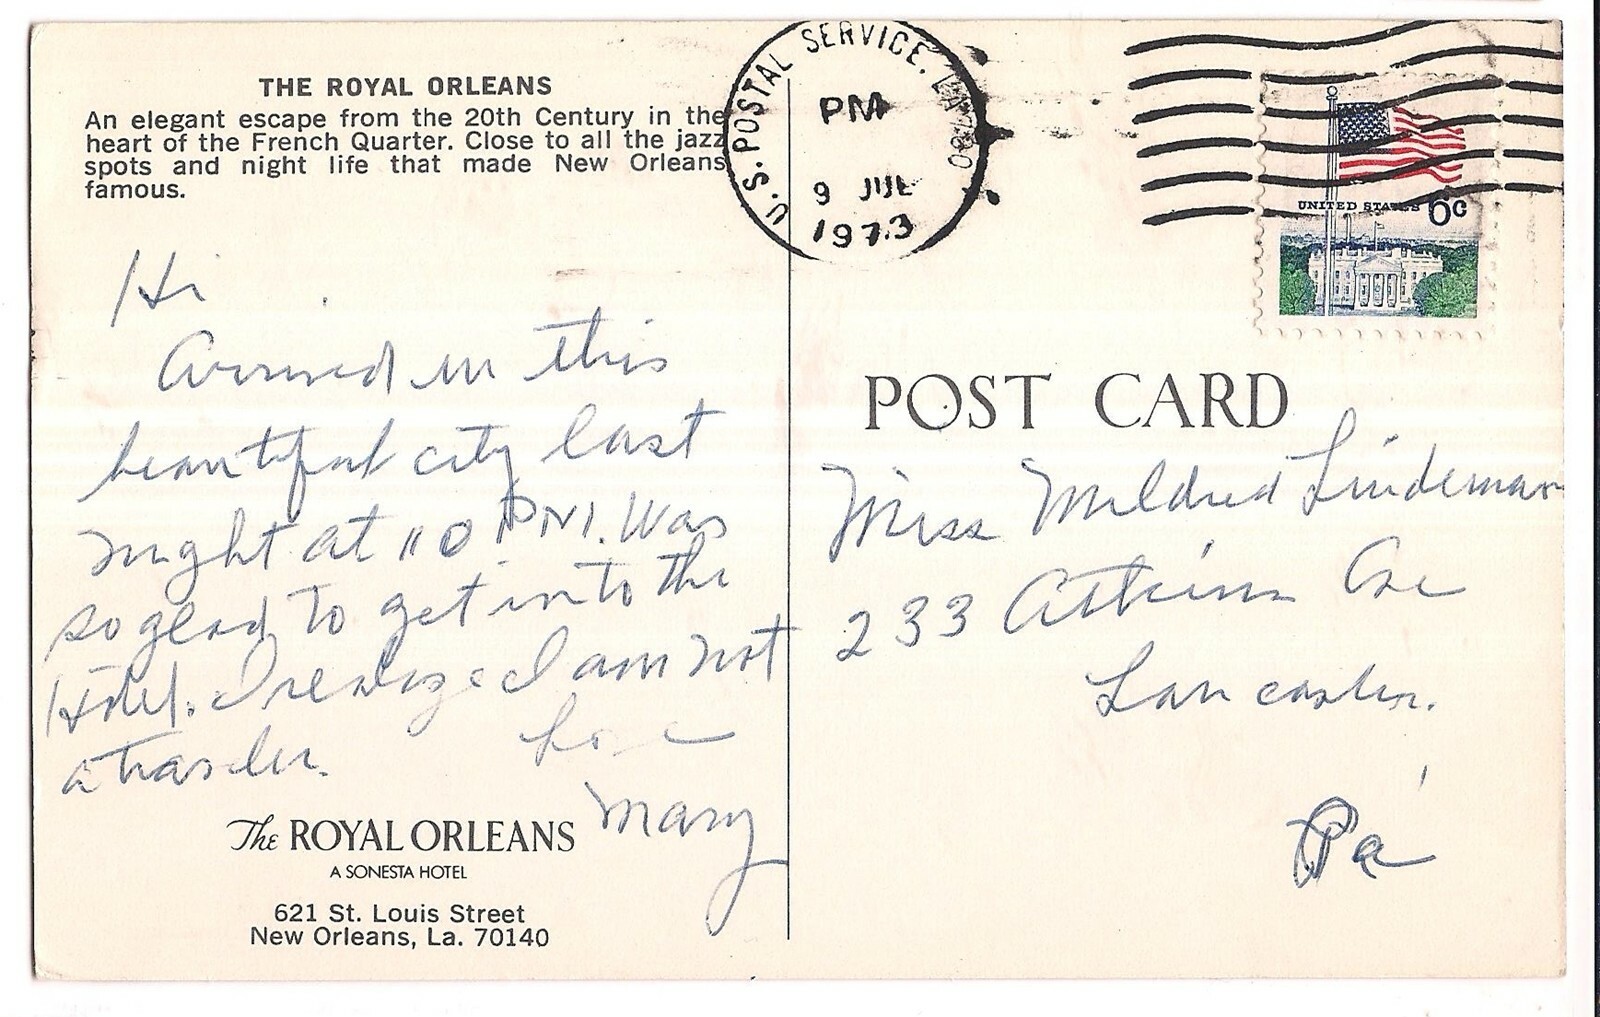 THE ROYAL ORLEANS
An elegant escape from the 20th Century in the
heart of the French Quarter. Close to all the jazz
spots and night life that made New Orleans
famous.
Hi
Arrived in this
beautiful city last
night at 110 PM. Was
so glad to get into the
Hotel. I realize I am not
a traveler.
Love
Mary
The ROYAL ORLEANS
A SONESTA HOTEL
621 St. Louis Street
New Orleans, La. 70140
U.S. POSTAL SERVICE, LA
PM
9 JUL
1973
UNITED STATES 6c
POST CARD
Miss Mildred Lindeman
233 Atkins Ave
Lancaster.
Pa